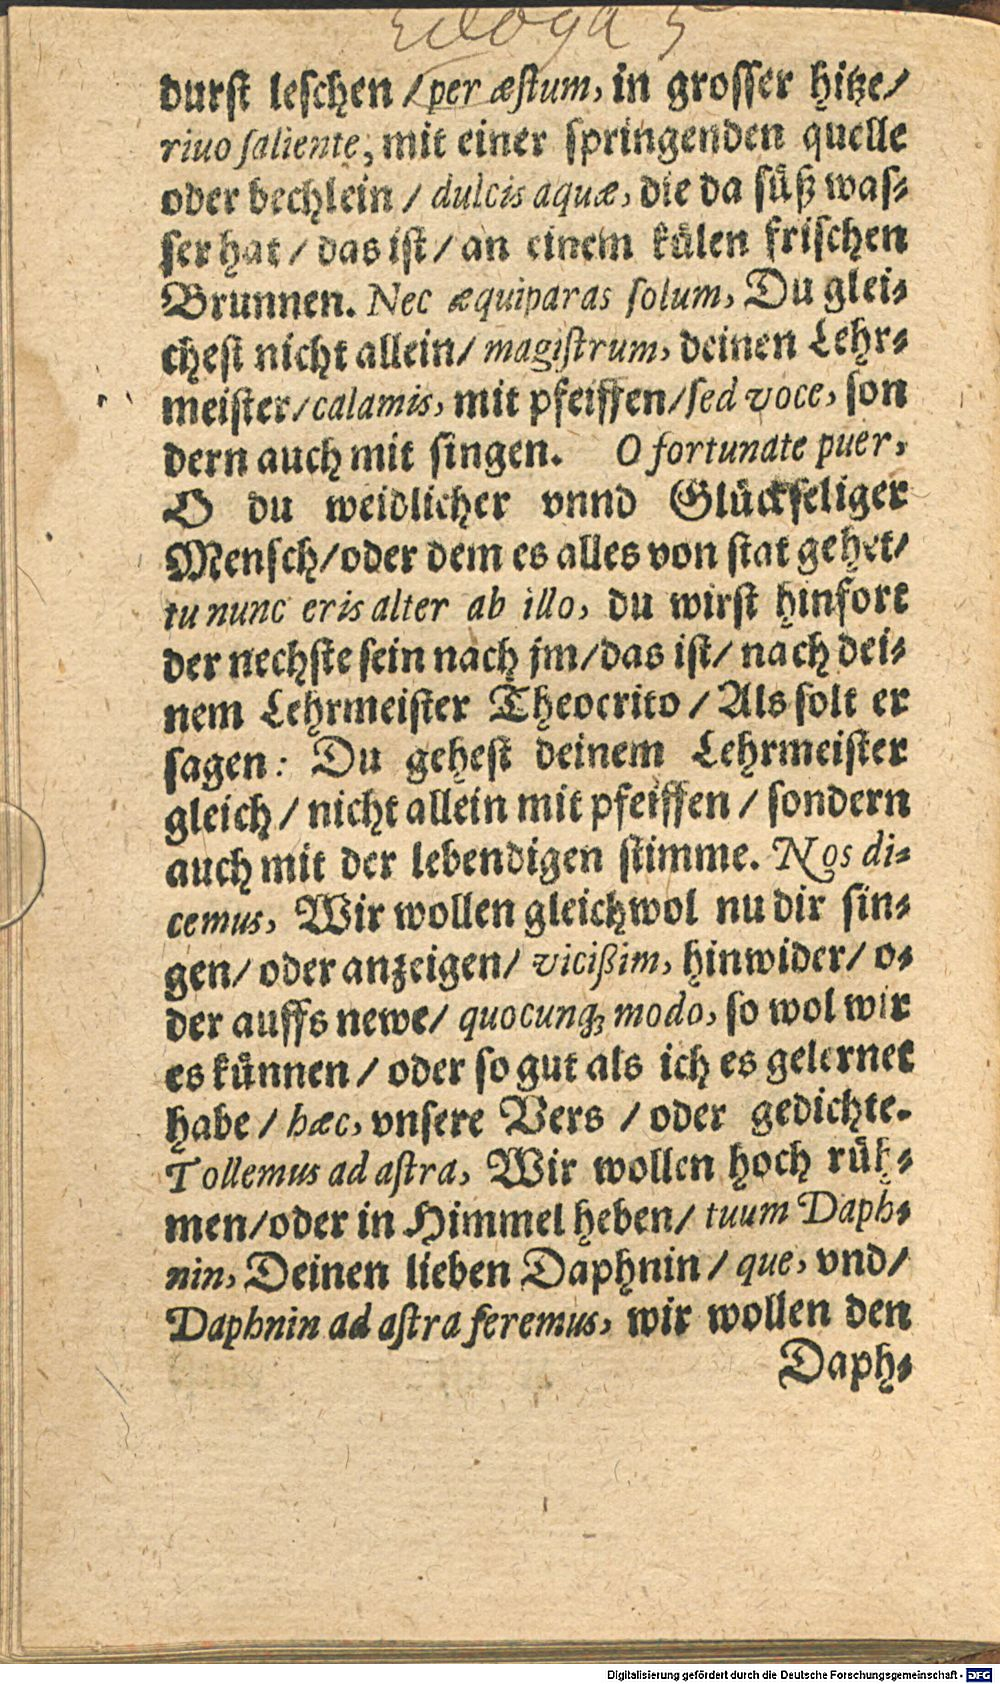 Ecloga 5
durst leschen / per æstum, in grosser hitze/
riuo saliente, mit einer springenden quelle
oder bechlein / dulcis aquæ, die da süß was⸗
ser hat / das ist / an einem külen frischen
Brunnen. Nec æquiparas solum, Du glei⸗
chest nicht allein/ magistrum, deinen Lehr⸗
meister/calamis, mit pfeiffen/sed voce, son
dern auch mit singen. O fortunate puer,
O du weidlicher vnnd Glückseliger
Mensch/oder dem es alles von stat gehet/
tu nunc eris alter ab illo, du wirst hinfort
der nechste sein nach jm/das ist/ nach dei⸗
nem Lehrmeister Theocrito / Als solt er
sagen: Du gehest deinem Lehrmeister
gleich / nicht allein mit pfeiffen / sondern
auch mit der lebendigen stimme. Nos di⸗
cemus, Wir wollen gleichwol nu dir sin⸗
gen/ oder anzeigen/ vicißim, hinwider/ o⸗
der auffs newe/ quocunq; modo, so wol wir
es künnen / oder so gut als ich es gelernet
habe / hæc, vnsere Vers / oder gedichte.
Tollemus ad astra, Wir wollen hoch rüh⸗
men/oder in Himmel heben/ tuum Daph⸗
nin, Deinen lieben Daphnin / que, vnd/
Daphnin ad astra feremus, wir wollen den
Daph⸗
Digitalisierung gefördert durch die Deutsche Forschungsgemeinschaft - DFG